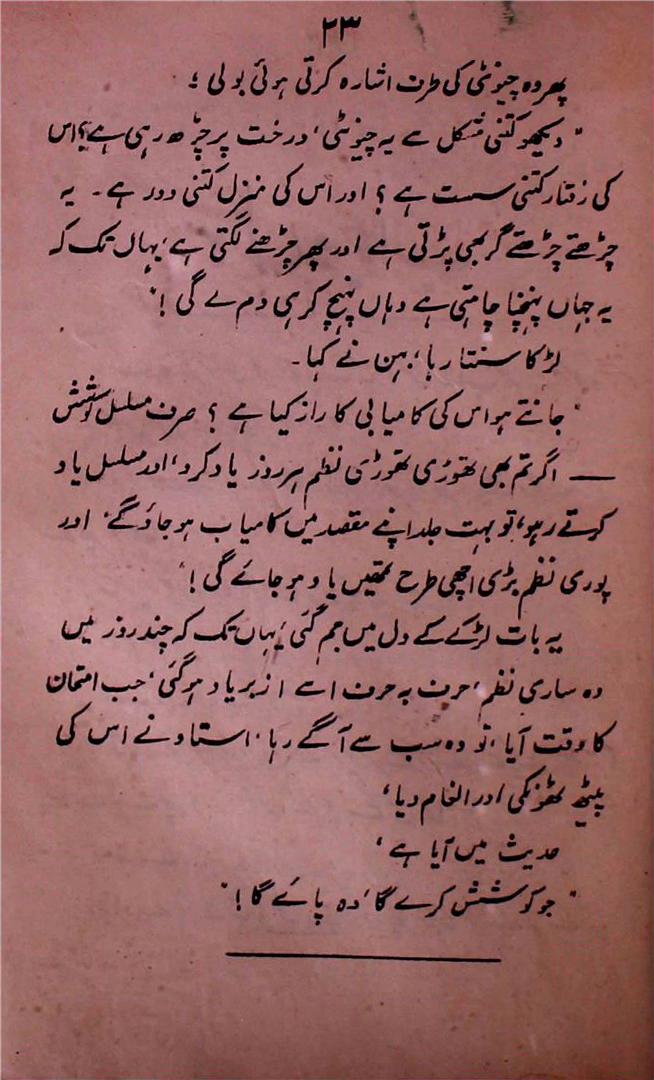 ۲۳
پھر وہ چیونٹی کی طرف اشارہ کرتی ہوئی بولی ؛
" دیکھو کتنی مشکل سے یہ چیونٹی ، درخت پر چڑھ رہی ہے ؟ اس
کی رفتار کتنی سست ہے ؟ اور اس کی منزل کتنی دور ہے ۔ یہ
چڑھتے چڑھتے گر بھی پڑتی ہے اور پھر چڑھنے لگتی ہے ، یہاں تک کہ
یہ جہاں پہنچنا چاہتی ہے وہاں پہنچ کر ہی دم لے گی ! "
لڑکا سنتا رہا ، بہن نے کہا ۔
" جانتے ہو اس کی کامیابی کا راز کیا ہے ؟ صرف مسلسل کوشش
— اگر تم بھی تھوڑی تھوڑی نظم ہر روز یاد کرو ، اور مسلسل یاد
کرتے رہو ، تو بہت جلد اپنے مقصد میں کامیاب ہو جاؤ گے ۔ اور
پوری نظم بڑی اچھی طرح تمھیں یاد ہو جائے گی ! "
یہ بات لڑکے کے دل میں جم گئی ، یہاں تک کہ چند روز میں
وہ ساری نظم ، حرف بہ حرف اسے ازبر یاد ہو گئی ، جب امتحان
کا وقت آیا ، تو وہ سب سے آگے رہا ، استاد نے اس کی
پیٹھ ٹھونکی اور انعام دیا ،
حدیث میں آیا ہے ،
" جو کوشش کرے گا ، وہ پائے گا ! "